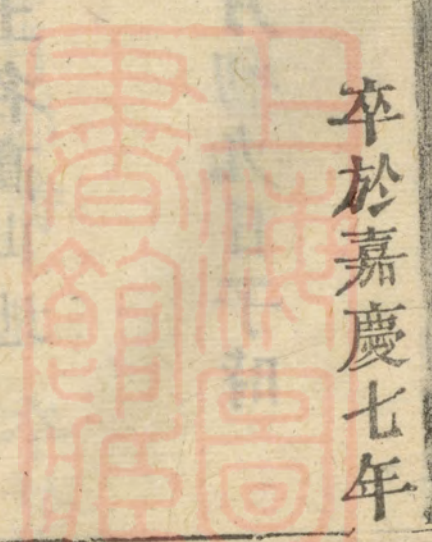 卒於嘉慶七年
上海圖
書館藏